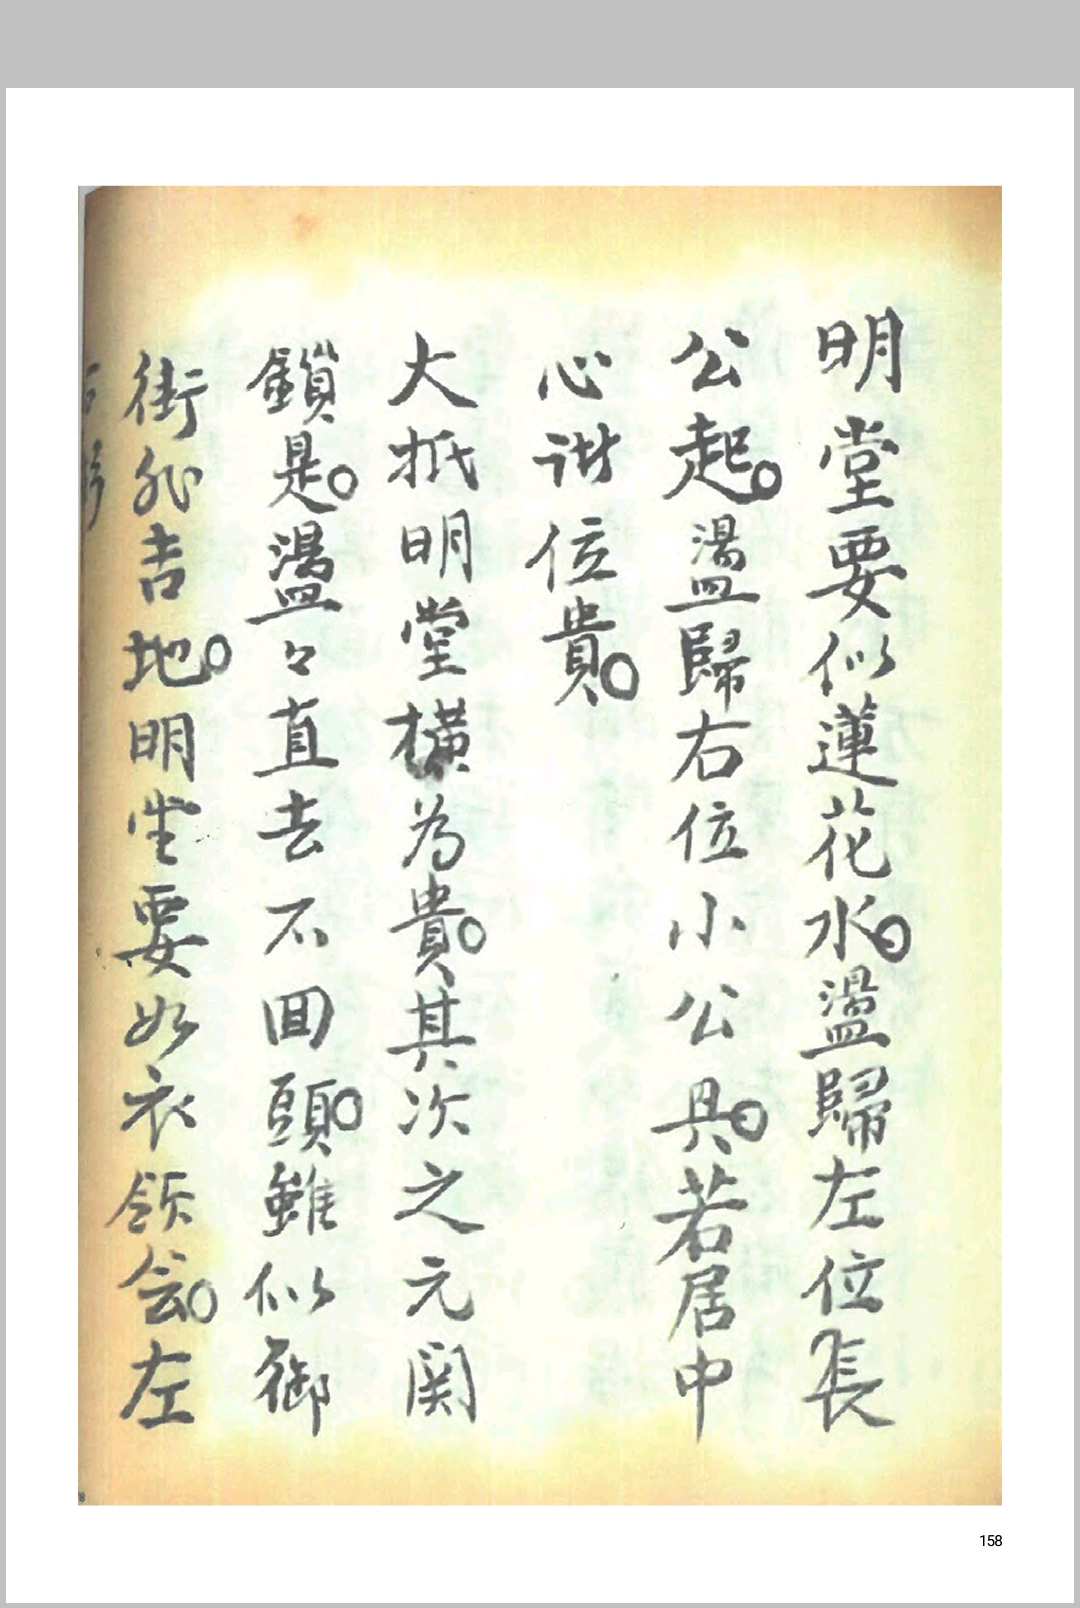 明堂要似蓮花水。盪歸左位長
公起。盪歸右位小公具。若居中
心諧位貴。
大抵明堂橫為貴。其次之元関
鎖是。盪々直去不回頭。雖似御
街非吉地。明堂要如衣領会。左
158